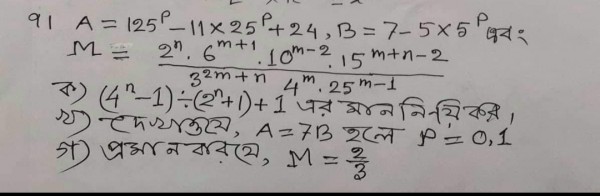 ৭। A = 125ᵖ − 11 × 25ᵖ + 24, B = 7 − 5 × 5ᵖ এবং
M = 2ⁿ · 6ᵐ⁺¹ · 10ᵐ⁻² · 15ᵐ⁺ⁿ⁻²
3²ᵐ⁺ⁿ 4ᵐ · 25ᵐ⁻¹
ক) (4ⁿ − 1) ÷ (2ⁿ + 1) + 1 এর মান নির্ণয় কর।
খ) দেখাওযে, A = 7B হলে P = 0, 1
গ) প্রমান করযে, M = 2/3